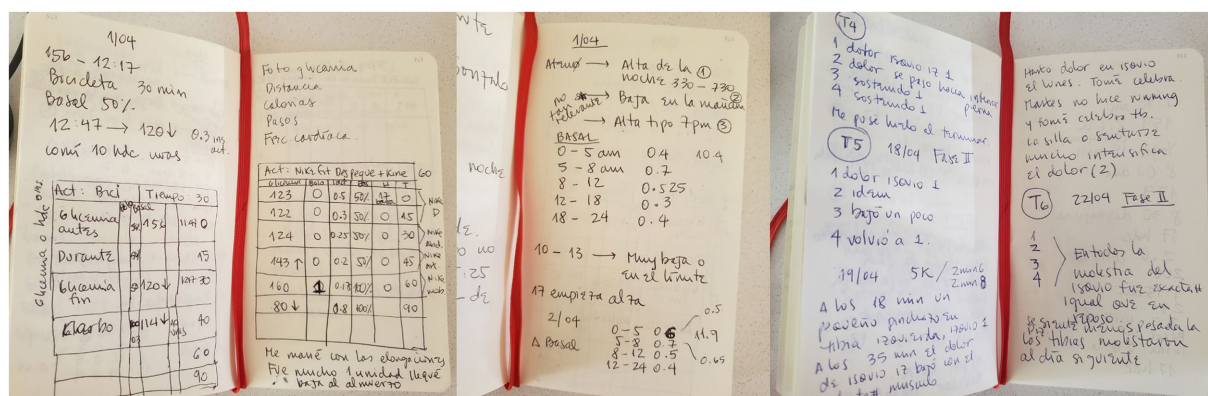 1/04
156 - 12:17
Bicicleta 30 min
Basal 50%
12:47 → 120↓ 0.3 ins act.
comí 10 hdc uvas
Glucemia o hdc
Act: Bici Tiempo 30
Glucemia antes 156 0
Durante 15
Glucemia fin 120↓ 30
114↓ 40
60
90
Foto glucemia
Distancia
Calorías
Pasos
Frec. cardíaca.
Act: Nike fit Despegue + Kine 60
123 0 0.5 50% 0
122 0 0.3 50% 0 15
124 0 0.25 50% 0 30
143↑ 0 0.2 50% 0 45
160 1 100% 0 60
80↓ 0.8 100% 90
Me maneé con las elongaciones
Fue mucho 1 unidad llegué
baja al almuerzo
noche
1/04
→ Alta de la ①
noche 330 - 730
no tan relevante → Baja en la mañana ②
→ Alta tipo 7pm ③
BASAL
0 - 5 am 0.4 10.4
5 - 8 am 0.7
8 - 12 0.525
12 - 18 0.3
18 - 24 0.4
10 - 13 → Muy baja o
en el límite
17 empieza alta
2/04
Δ Basal
0-5 0.5
5-8 0.7 11.9
8-12 0.5
12-24 0.4 0.45
T4
1 dolor isquio iz 1
2 dolor se pasó hacia interno pierna
3 sostenido 1
4 sostenido 1
Me puse hielo al terminar
T5 18/04 Fase II
1 dolor isquio 1
2 idem
3 bajó un poco
4 volvió a 1.
19/04 5K / 2min6
2min8
A los 18 min un
pequeño pinchazo en
tibia izquierda, isquio 1
A los 35 min el dolor
de isquio iz bajó con el
músculo
Harto dolor en isquio
el lunes. Tomé celebra.
Martes no hice running
y tomé celebra tb.
La silla o sentarse
mucho intensifica
el dolor (2)
T6 22/04 Fase II
1
2
3
4
En todos la
molestia del
isquio fue exactam
igual que en
reposo.
Se siente menos pesada la
Las tibias molestaron
al día siguiente